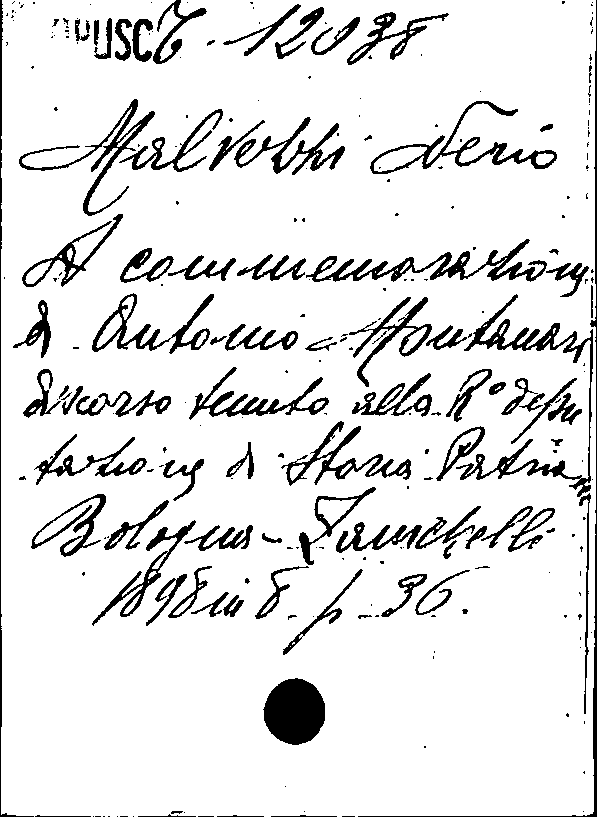 OPUSC T. 12038
Malvezzi Nerio
A commemorazione
di Antonio Montanari
discorso tenuto alla Rº depu
tazione di Storia Patria
Bologna - Zanichelli
1898 in 8. p. 36.